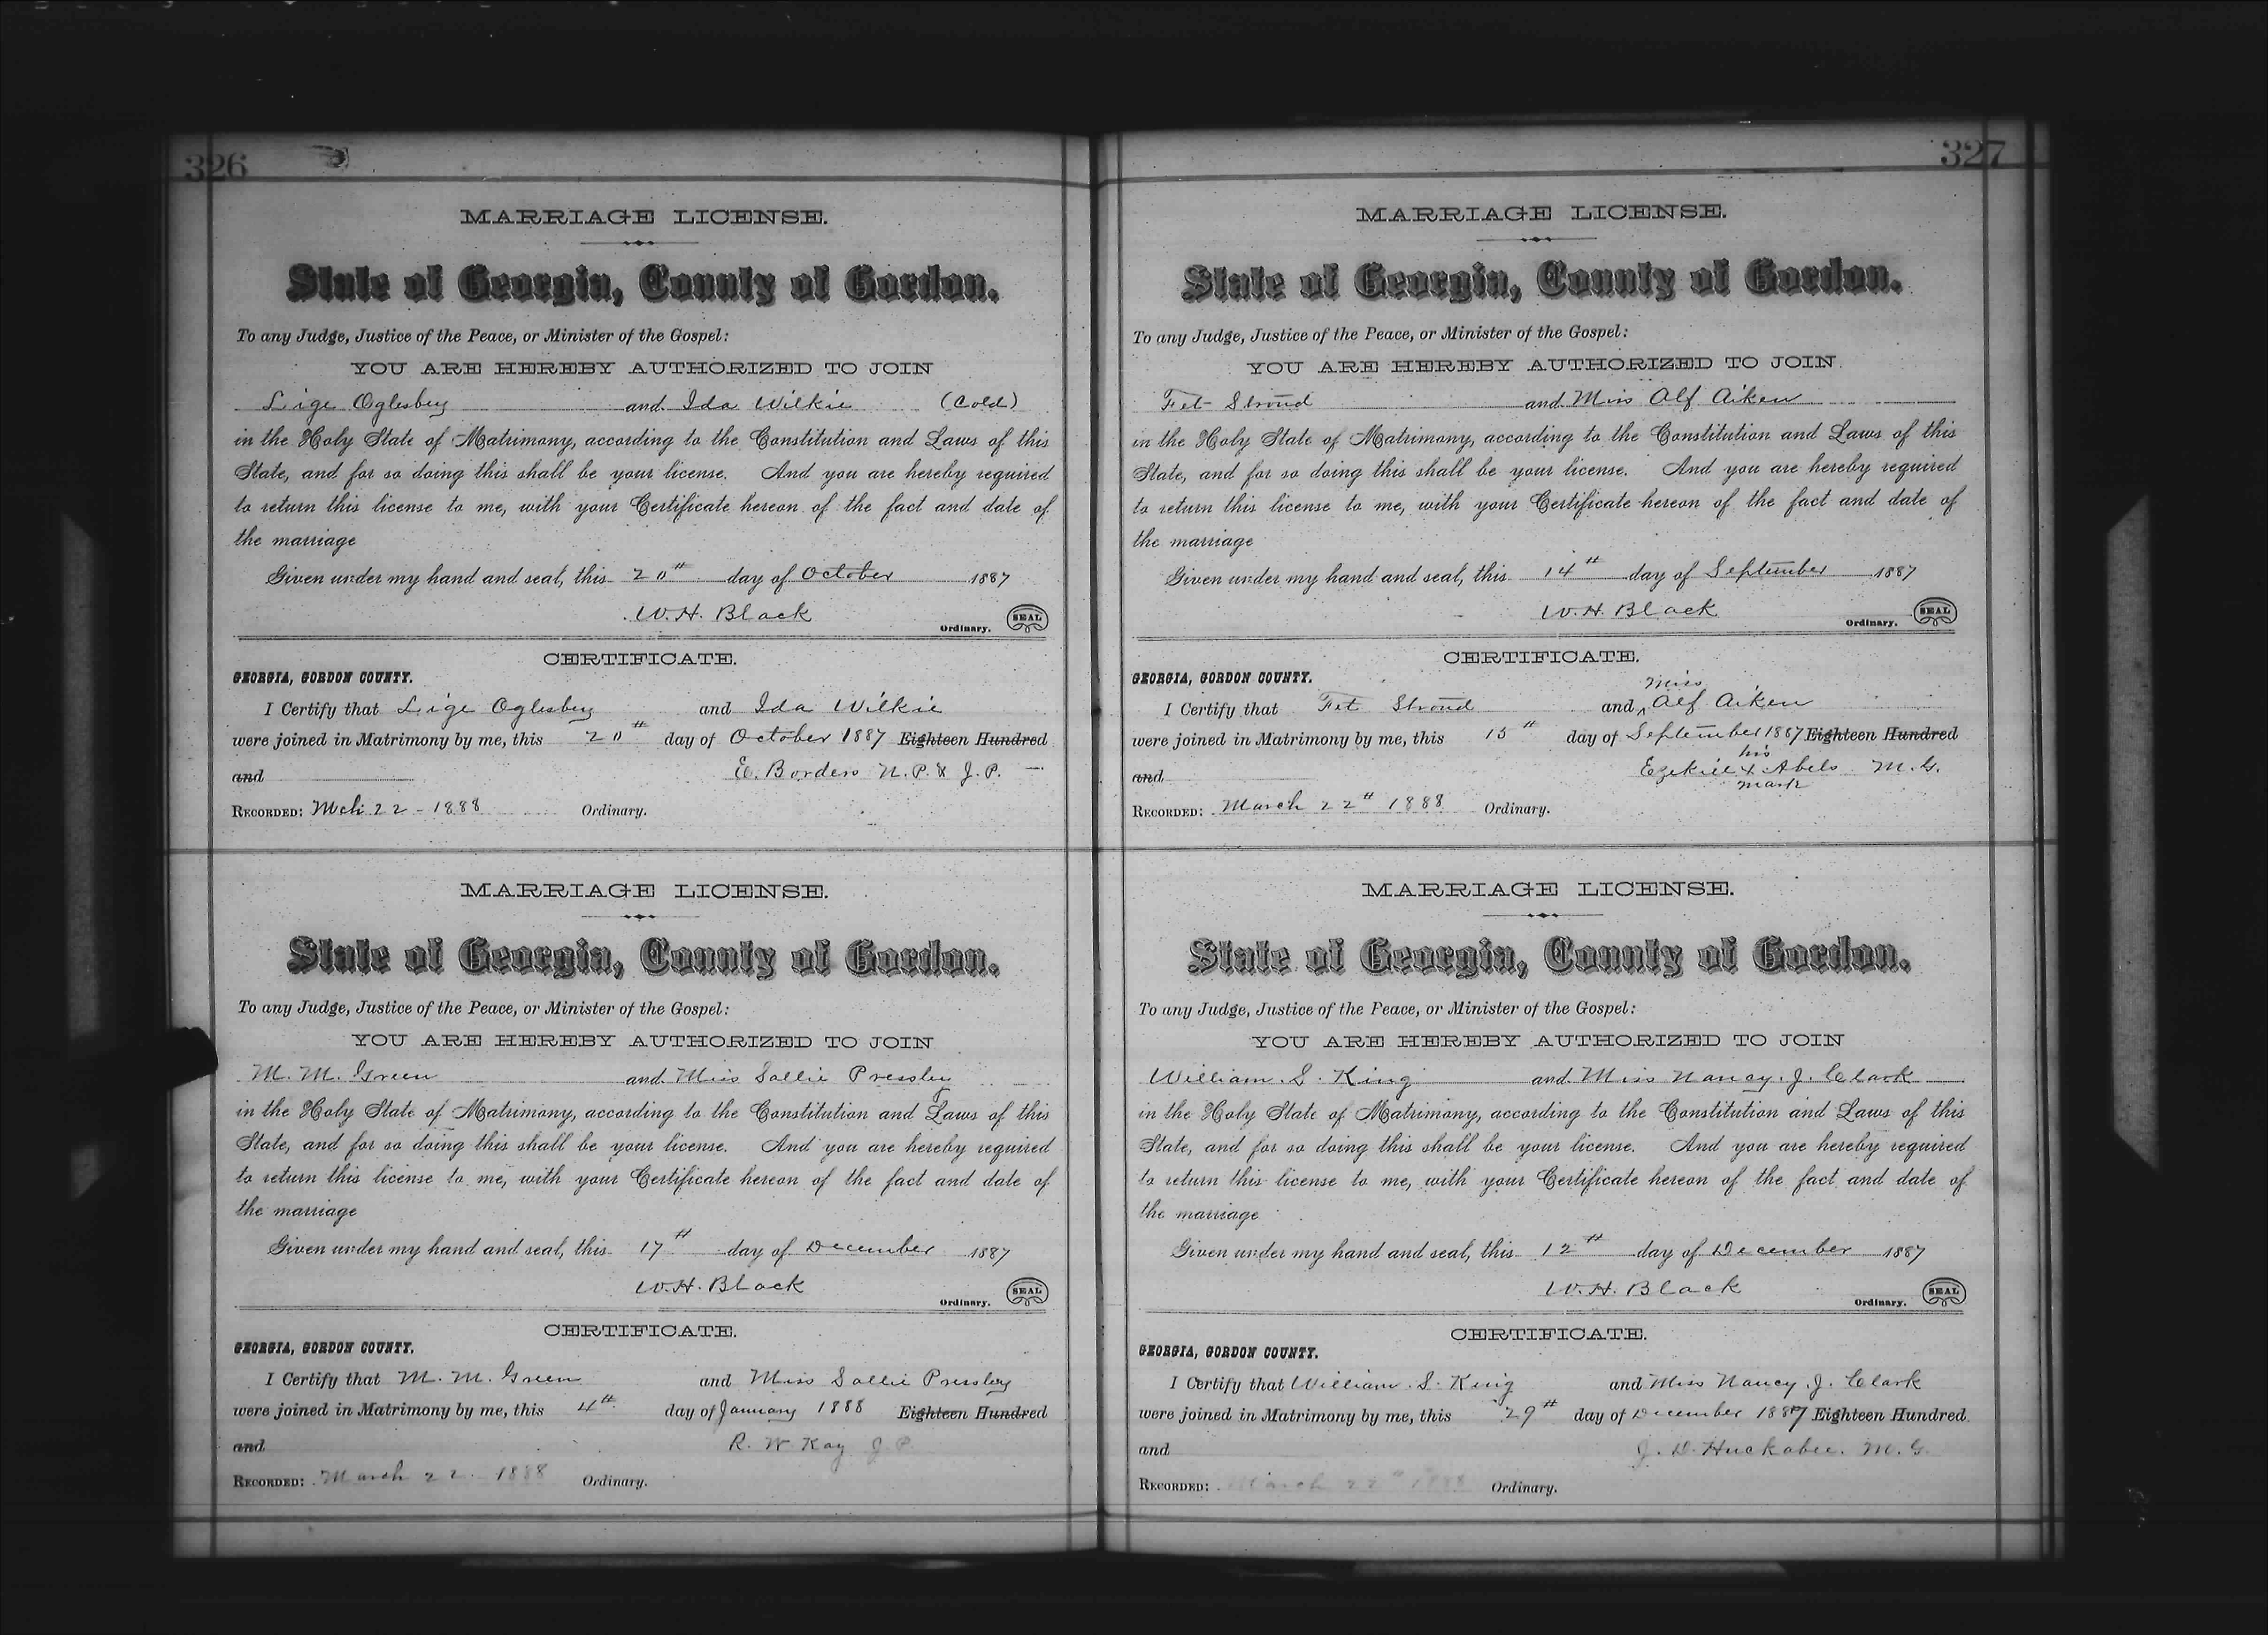 326
MARRIAGE LICENSE.
State of Georgia, County of Gordon.
To any Judge, Justice of the Peace, or Minister of the Gospel:
YOU ARE HEREBY AUTHORIZED TO JOIN
Lige Oglesbey and Ida Wilkie (Cold)
in the Holy State of Matrimony, according to the Constitution and Laws of this
State, and for so doing this shall be your license. And you are hereby required
to return this license to me, with your Certificate hereon of the fact and date of
the marriage
Given under my hand and seal, this 20th day of October 1887
W.H. Black
Ordinary. SEAL
CERTIFICATE.
GEORGIA, GORDON COUNTY.
I Certify that Lige Oglesbey and Ida Wilkie
were joined in Matrimony by me, this 20th day of October 1887 Eighteen Hundred
and E. Borders N.P. & J.P.
RECORDED: Mch 22 - 1888 Ordinary.
MARRIAGE LICENSE.
State of Georgia, County of Gordon.
To any Judge, Justice of the Peace, or Minister of the Gospel:
YOU ARE HEREBY AUTHORIZED TO JOIN
M. M. Green and Miss Sallie Pressley
in the Holy State of Matrimony, according to the Constitution and Laws of this
State, and for so doing this shall be your license. And you are hereby required
to return this license to me, with your Certificate hereon of the fact and date of
the marriage
Given under my hand and seal, this 17th day of December 1887
W.H. Black
Ordinary. SEAL
CERTIFICATE.
GEORGIA, GORDON COUNTY.
I Certify that M. M. Green and Miss Sallie Pressley
were joined in Matrimony by me, this 4th day of January 1888 Eighteen Hundred
and R. W. Kay J.P.
RECORDED: March 22. 1888 Ordinary.
327
MARRIAGE LICENSE.
State of Georgia, County of Gordon.
To any Judge, Justice of the Peace, or Minister of the Gospel:
YOU ARE HEREBY AUTHORIZED TO JOIN
Fet Stroud and Miss Alf Aiken
in the Holy State of Matrimony, according to the Constitution and Laws of this
State, and for so doing this shall be your license. And you are hereby required
to return this license to me, with your Certificate hereon of the fact and date of
the marriage
Given under my hand and seal, this 14th day of September 1887
W.H. Black
Ordinary. SEAL
CERTIFICATE.
GEORGIA, GORDON COUNTY.
Miss
I Certify that Fet Stroud and Alf Aiken
were joined in Matrimony by me, this 15th day of September 1887 Eighteen Hundred
his
and Ezekiel X Abels M.G.
mark
RECORDED: March 22th 1888 Ordinary.
MARRIAGE LICENSE.
State of Georgia, County of Gordon.
To any Judge, Justice of the Peace, or Minister of the Gospel:
YOU ARE HEREBY AUTHORIZED TO JOIN
William. S. King and Miss Nancy. J. Clark
in the Holy State of Matrimony, according to the Constitution and Laws of this
State, and for so doing this shall be your license. And you are hereby required
to return this license to me, with your Certificate hereon of the fact and date of
the marriage
Given under my hand and seal, this 12th day of December 1887
W.H. Black
Ordinary. SEAL
CERTIFICATE.
GEORGIA, GORDON COUNTY.
I Certify that William. S. King and Miss Nancy. J. Clark
were joined in Matrimony by me, this 29th day of December 1887 Eighteen Hundred
and J. D. Huckabee. M.G.
RECORDED: March 22th 1888 Ordinary.